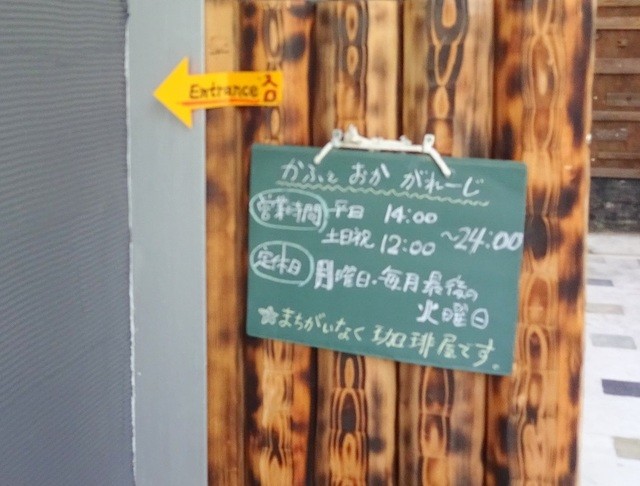 Entrance 入口
かふぇ おか がれーじ
営業時間 平日 14:00
土日祝 12:00 ~24:00
定休日 月曜日・毎月最後の
火曜日
☆まちがいなく珈琲屋です。